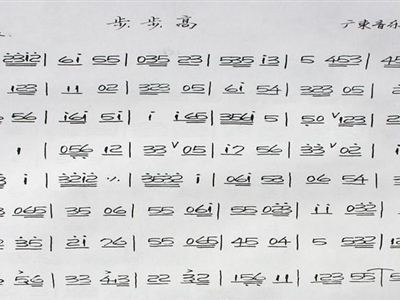 步步高 广东音乐
2312 | 6i 55 | 035 23 | 535 i3 | 5 453 | 45
123 | 11 02 | 323 05 | 6i 54 | 323 05 | 2
56 | i6i 5i | i i65 | 356i 5 | 50 ∨123 | 2
1 | 056 12 | 33 ∨05 | i2 56 | 33 ∨02 | i
i | 3212 ٪ | 3532 i | 06i 53 | 06 54 | 3
065 | 35 06 | 55 06i | 55 023 | ii 032 |
35 | 2i 26 | 55 065 | 45 04 | 5 532 | 12
56 | 33 43 | 22 32 | 156 11 | 123 55 | 5